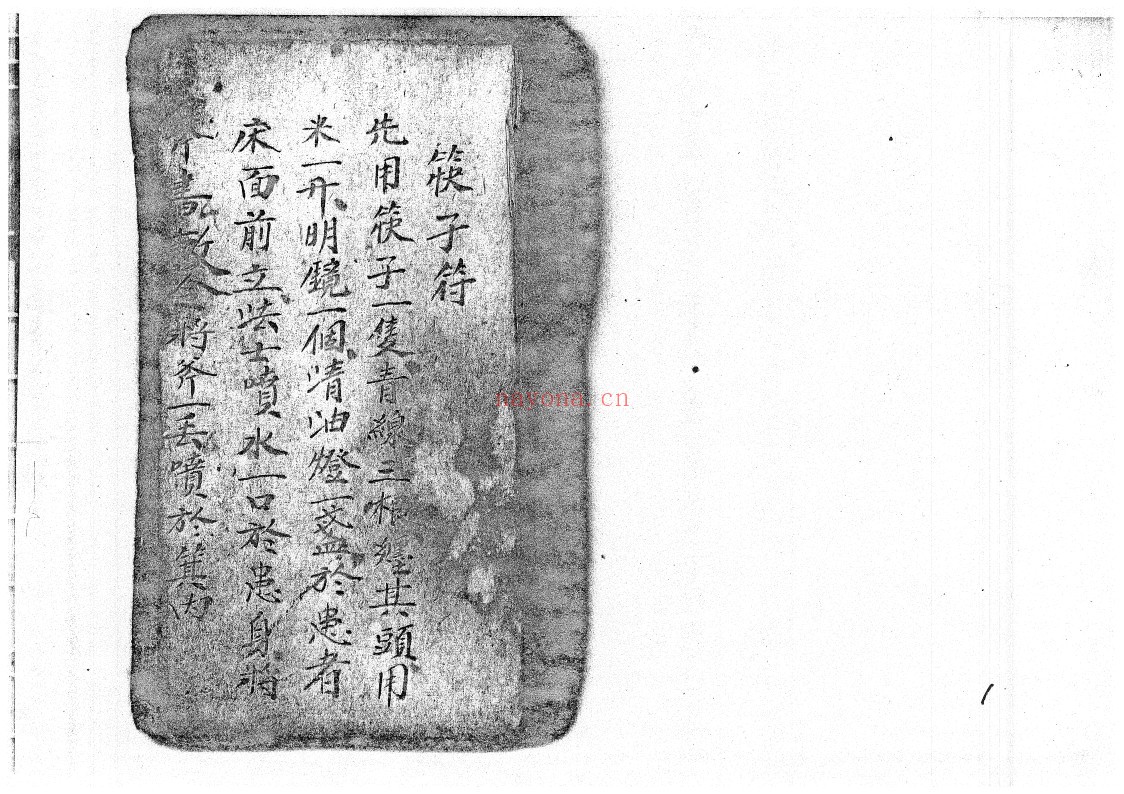 筷子符
先用筷子一隻青線三根纏其頭用
米一升明鏡一個清油燈一盞於患者
床面前立法士噴水一口於患身將
斧書敕令將斧一丟噴於箕內
nayona.cn
1